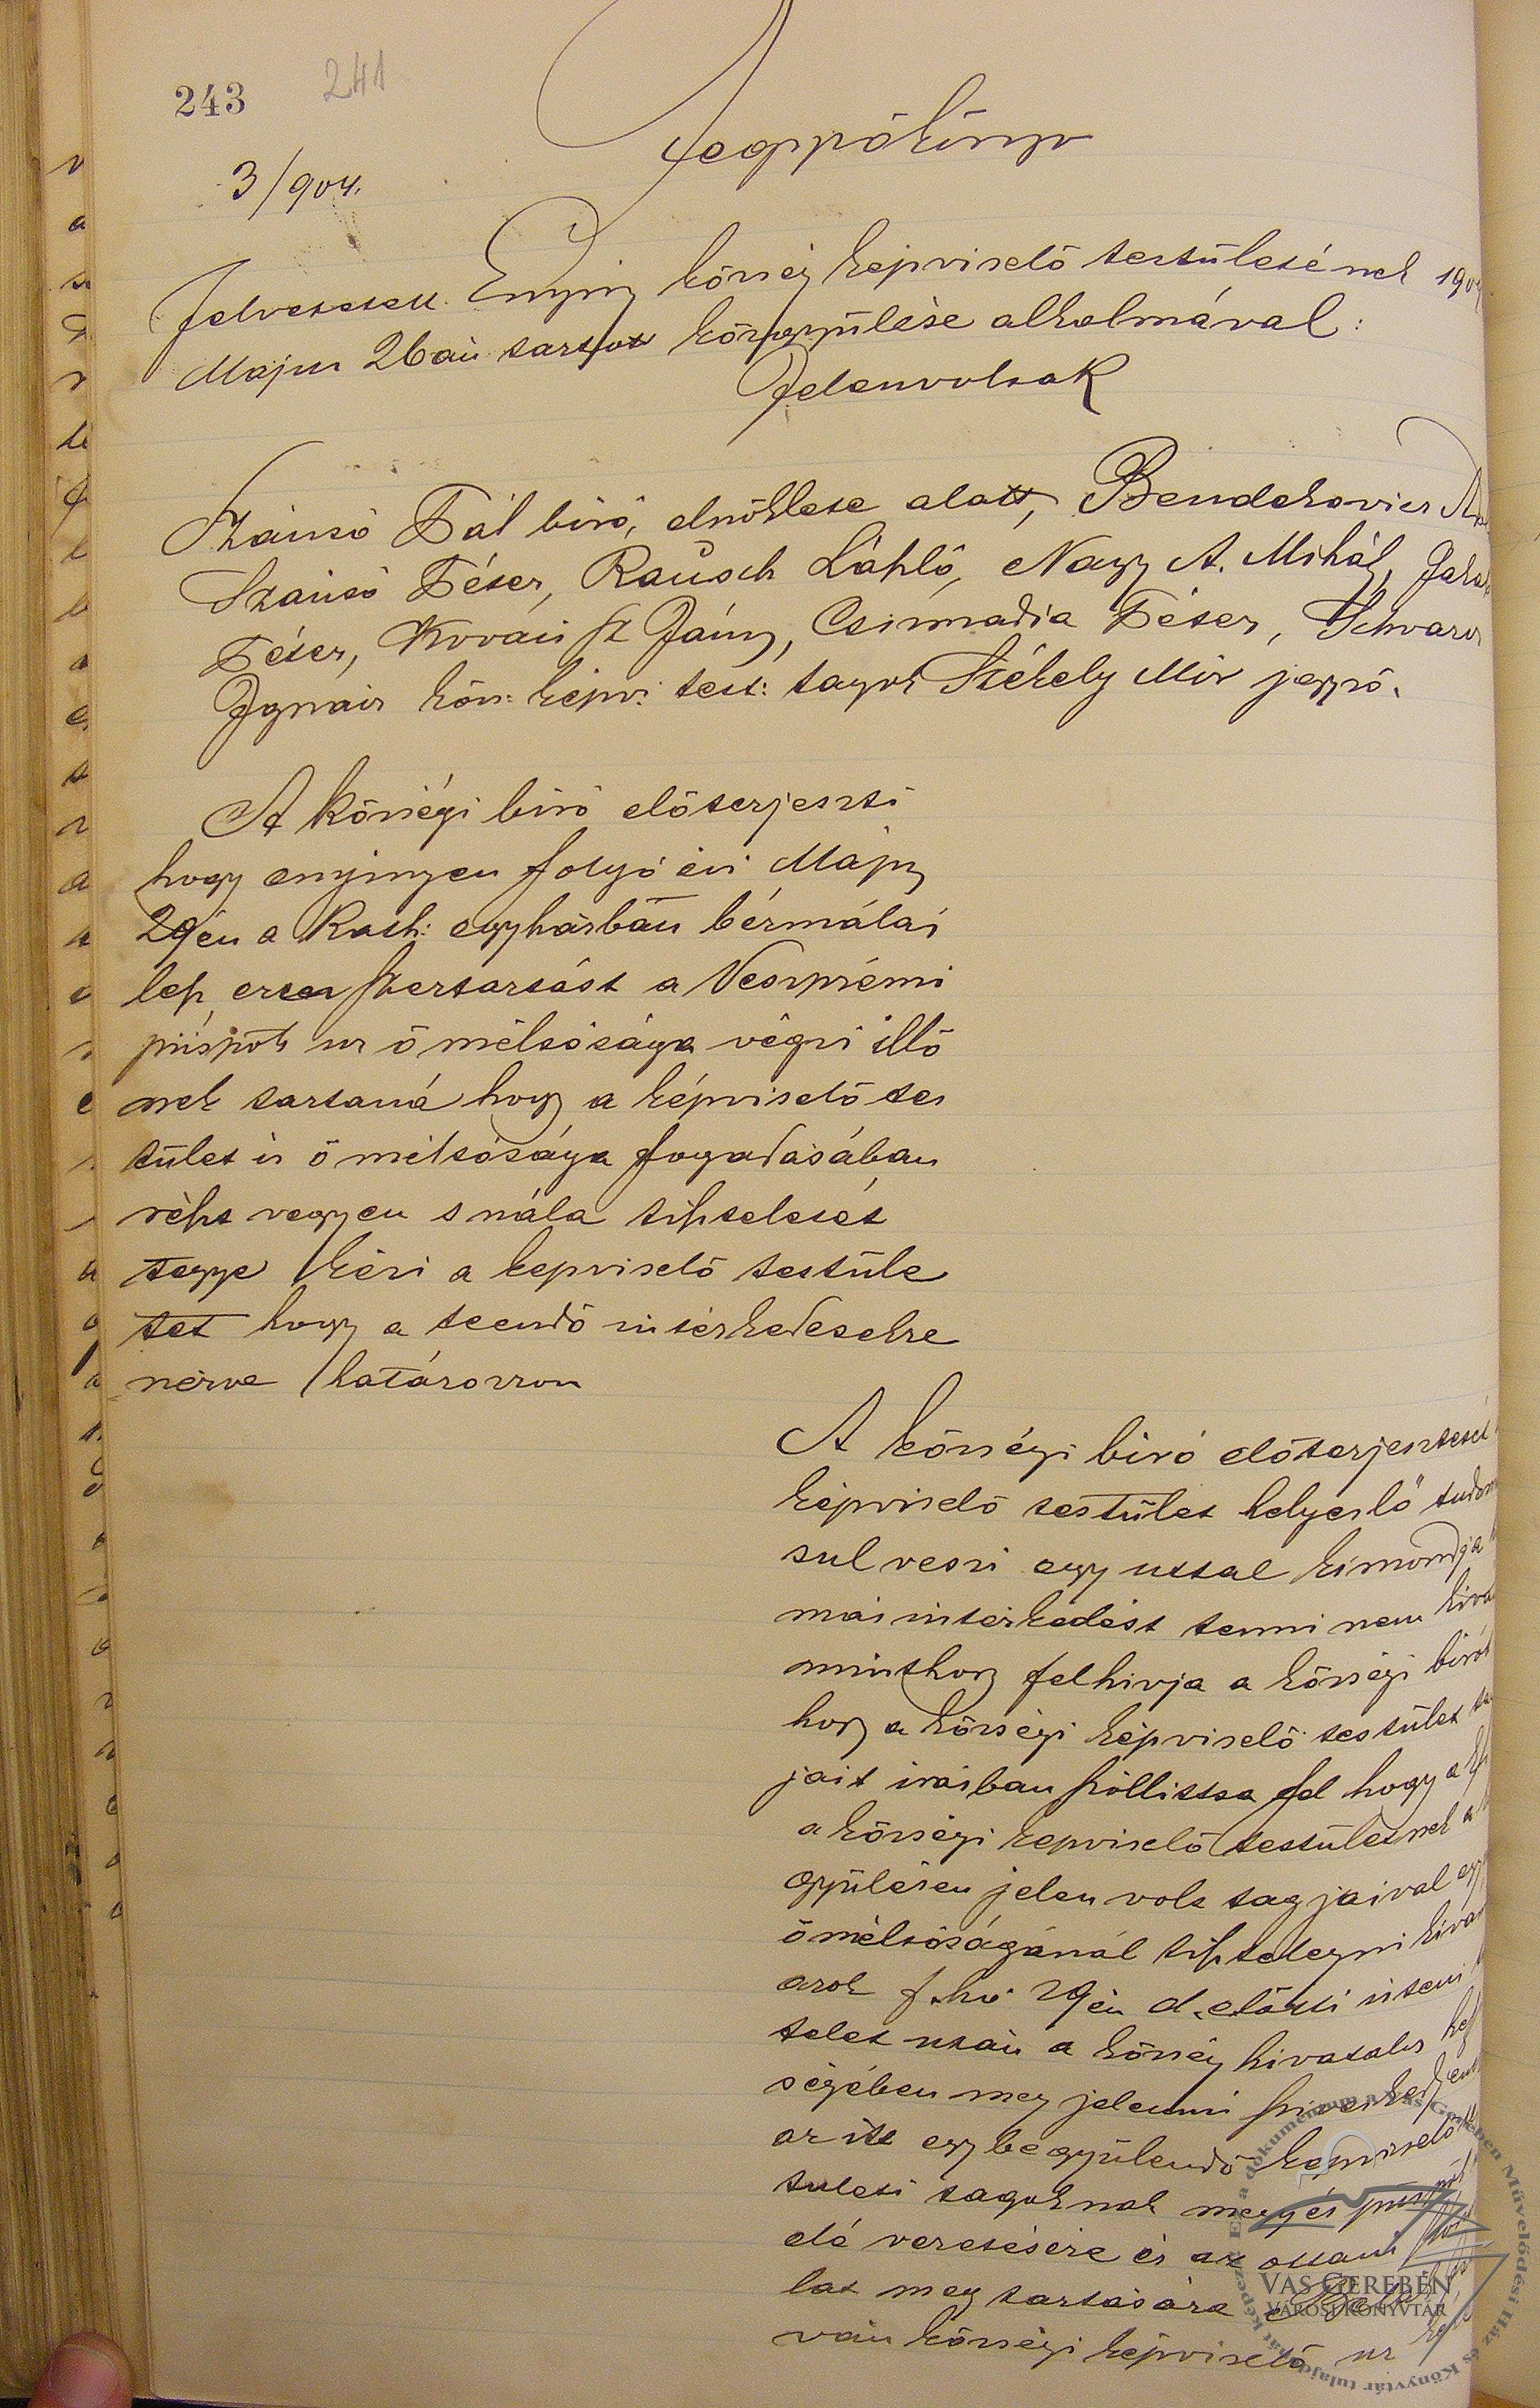 243 241
3/904.
Jegyzőkönyv
Felvétetett Enying község képviselő testületének 190
Május 26án tartott közgyülése alkalmával:
Jelenvoltak
Szántó Pál biró, elnöklete alatt, Bendekovics
Szántó Péter, Rausch László, Nagy A. Mihály,
Péter, Kovács Sz János, Csizmadia Péter, Schvarcz
Ignácz köz: képv: test: tagok Székely Mór jegyző.
A községi biró előterjeszti
hogy enyingen folyó évi Május
29én a Kath: egyházban bérmálás
lesz, ezen szertartást a Veszprémi
püspök ur ő méltósága végzi illő
nek tartaná hogy a képviselő tes
tület is ő méltósága fogadásában
részt vegyen s nála tiszteletét
tegye kéri a képviselő testüle
tet hogy a teendő intézkedésekre
nézve határozzon
A községi biró előterjesztését
képviselő testület helyeslő tudom
sul veszi egyuttal kimondja
más intézkedést tenni nem kivá
minthogy felhivja a községi birót
hogy a községi képviselő testület ta
jait irásban szóllittsa fel hogy a
a községi képviselő testületnek a
gyülésen jelen volt tagjaival egy
őméltóságánál tisztelegni kiván
azok f. hó 29én d. előtti isteni
telet után a község hivatalos hely
ségében meg jelenni sziveskedjenek
az itt egybegyülendő képviselő
tuleti tagoknak megyés püspök
elé vezetésére és az ottani
lat meg tartására
ván községi képviselő ur
Ez a dokumentum a Vas Gereben Művelődési Ház és Könyvtár tulajdonát képezi
VAS GEREBEN
VÁROSI KÖNYVTÁR